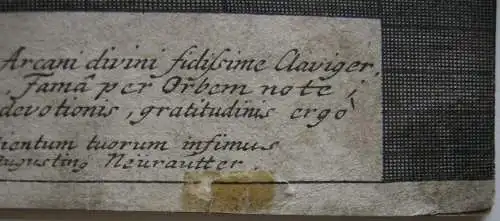 Arcani divini fidissime Claviger,
Famâ per Orbem note,
devotionis, gratitudinis ergò
ientum tuorum infimus
ugustinq Neürautter.